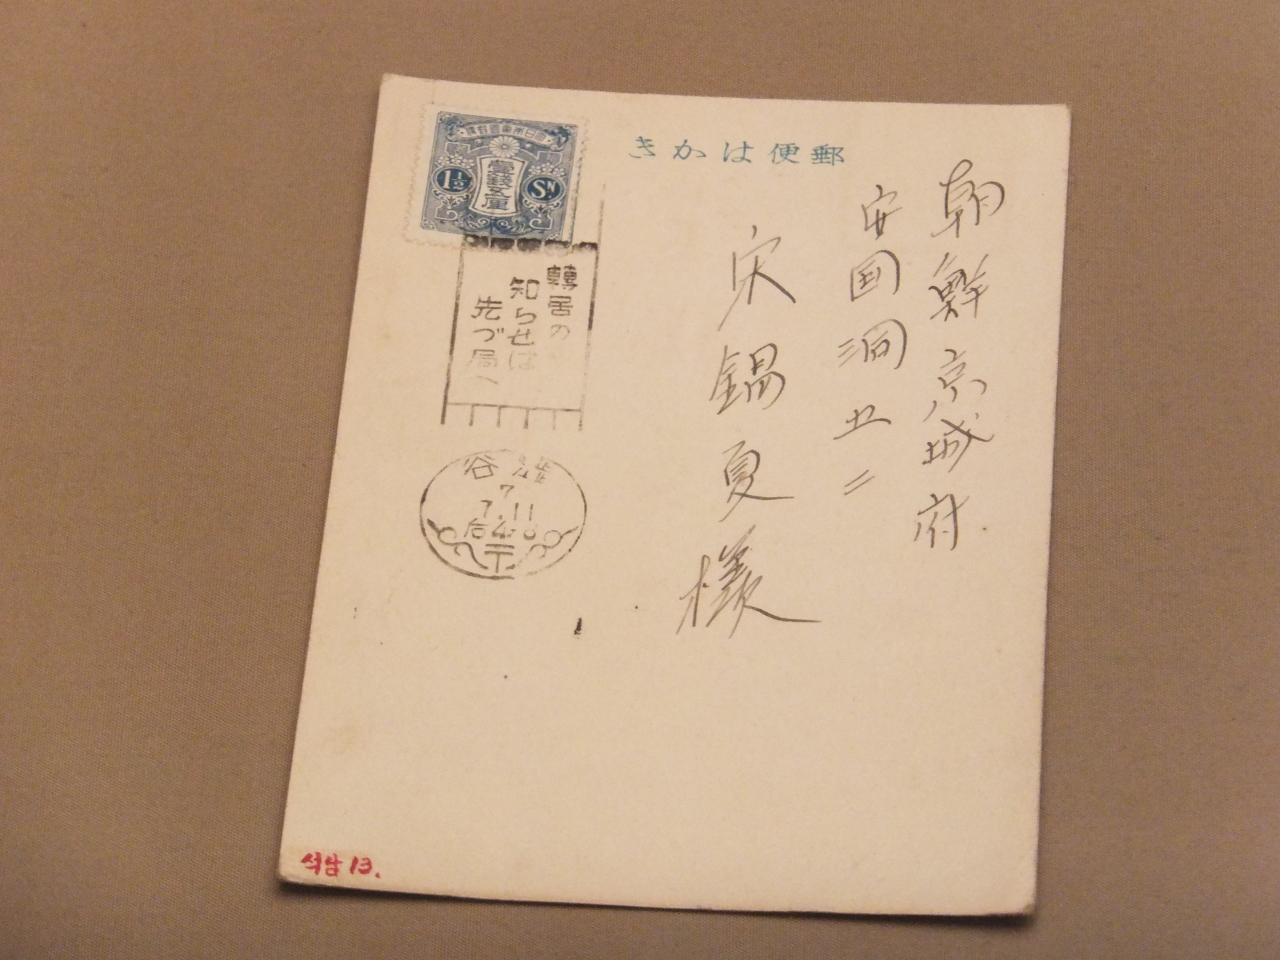 郵便はかき
朝鮮京城府
安国洞五二
宋錫夏様
大日本帝國郵便
壹錢五厘
1½ Sn
轉居の
知らせは
先づ局へ
7
7.11
后4-8
석남 13.